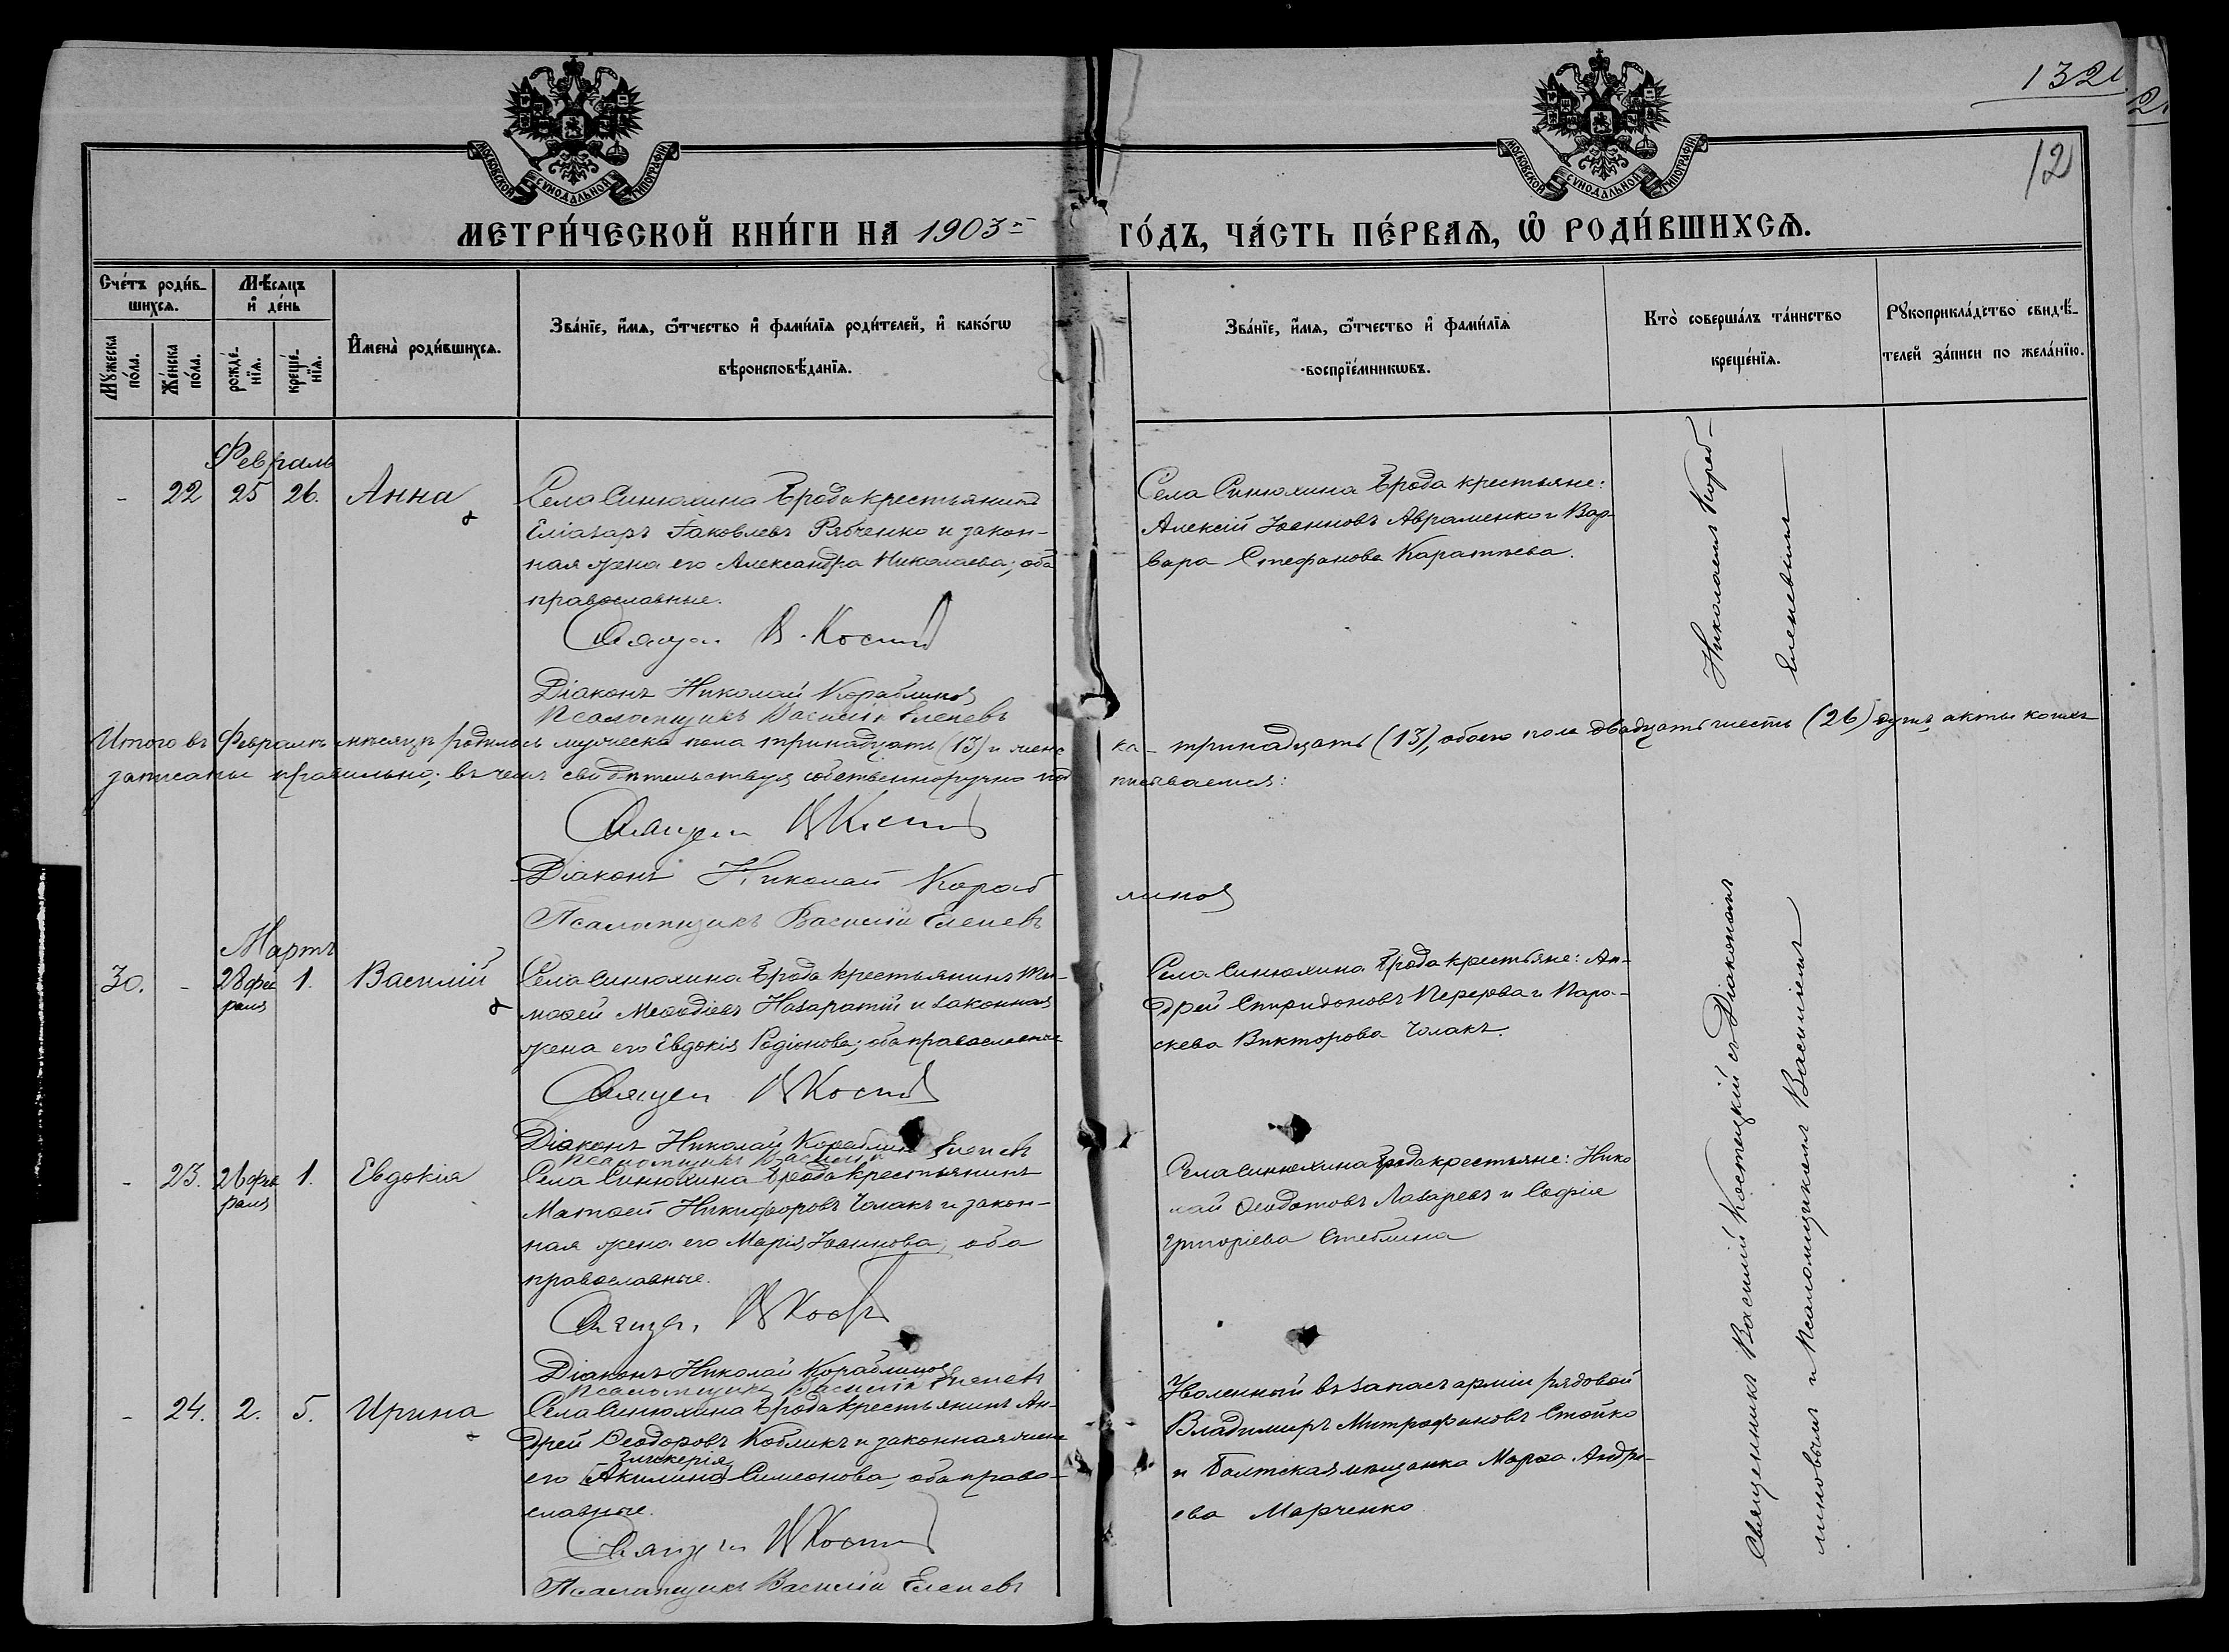 1321
2
12
МОСКОВСКОЙ СѴНОДАЛЬНОЙ ТИПОГРАФІИ
МОСКОВСКОЙ СѴНОДАЛЬНОЙ ТИПОГРАФІИ
МЕТРИ́ЧЕСКОЙ КНИ́ГИ НА 1903 ГО́ДЪ, ЧА́СТЬ ПЕ́РВАѦ, Ѡ҆ РОДИ́ВШИХСѦ.
Сче́тъ роди́в-
шихсѧ.
Мѣ́сѧцъ
и҆ де́нь
Мꙋ́жеска
по́ла.
Же́нска
по́ла.
рожде́-
нїѧ.
креще́-
нїѧ.
И҆мена̀ роди́вшихсѧ.
Зва́нїе, и҆́мѧ, ѻ҆́тчество и҆ фами́лїѧ роди́телей, и҆ како́гѡ
вѣроисповѣ́данїѧ.
Зва́нїе, и҆́мѧ, ѻ҆́тчество и҆ фами́лїѧ
воспрїе́мникѡвъ.
Кто̀ соверша́лъ та́инство
креще́нїѧ.
Рꙋкоприкла́дство свидѣ́-
телей за́писи по жела́нїю.
Февраль
- 22 25 26. Анна
Села Синюхина Брода крестьянинъ
Еліазаръ Іаковлевъ Рябченко и закон-
ная жена его Александра Николаева; оба
православные.
Священ В. Кост
Діаконъ Николай Кораблиновъ
Псаломщикъ Василій Елепевъ
Села Синюхина Брода крестьяне:
Алексій Іоанновъ Авраменко и Вар-
вара Стефанова
Николаемъ Кораб-
Итого въ Февралѣ мѣсяцѣ родилось мужеска пола тринадцать (13) и женс
ка - тринадцать (13), обоего пола двадцать шесть (26) душъ, акты коихъ
записаны правильно; въ чемъ свидѣтельствуя собственноручно под
писываемся:
Священ В Кост
Діаконъ Николай Кораб
линовъ
Псаломщикъ Василій Елепевъ
Мартъ
30. - 28 фев
раля 1. Василій
Села Синюхина Брода крестьянинъ Ти-
моѳей Меѳодіевъ Назаратій и законная
жена его Евдокія Родіонова; оба православные
Священ В Кост
Діаконъ Николай Кораблиновъ
Псаломщикъ Василій Елепевъ
Села Синюхина Брода крестьяне: Ан-
дрей Спиридоновъ Перерва и Пара-
скева Викторова Чолакъ.
- 23. 26 фев
раля 1. Евдокія
Села Синюхина Брода крестьянинъ
Матѳей Никифоровъ Чолакъ и закон-
ная жена его Марія Іоаннова, оба
православные.
Священ В Кост
Діаконъ Николай Кораблиновъ
Псаломщикъ Василій Елепевъ
Села Синюхина Брода крестьяне: Нико
лай Ѳеодотовъ Лазаревъ и Софія
Григоріева Стеблина
- 24. 2. 5. Ирина
Села Синюхина Брода крестьянинъ Ан-
дрей Ѳеодоровъ Кобликъ и законная жена
Гликерія
его Акилина Симеонова, оба право-
славные.
Священ В Кост
Псаломщикъ Василій Елепевъ
Уволенный въ запасъ арміи рядовой
Владимиръ Митрофановъ Стойко
и Балтская мѣщанка Марѳа Андре-
ева Марченко
Священникъ Василій Костецкій съ Діакономъ
линовымъ и Псаломщикомъ Василіемъ